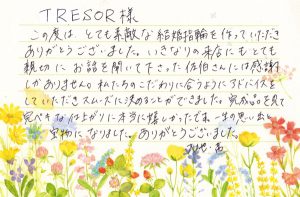 TRESOR様
この度は とても素敵な結婚指輪を作っていただき
ありがとうございました。いきなりの来店にもとても
親切にお話を聞いて下さった佐伯さんには感謝
しかありません。私たちのこだわりに合うようにアドバイスを
していただきスムーズに決めることができました。完成品を見て
完ペキな仕上がりに本当に嬉しかったです。一生の思い出と
宝物になりました。ありがとうございました。